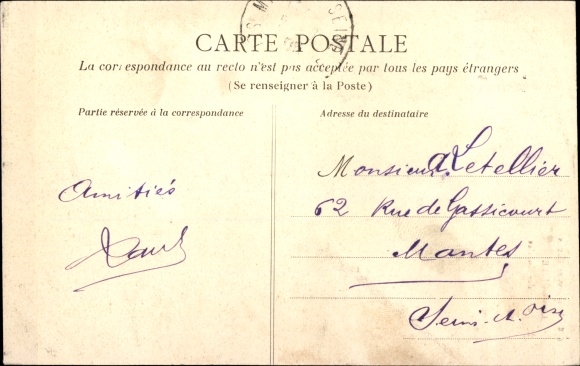 CARTE POSTALE
La correspondance au recto n'est pas acceptée par tous les pays étrangers
(Se renseigner à la Poste)
Partie réservée à la correspondance
Adresse du destinataire
Amitiés
Monsieur A. Letellier
62 Rue de Gassicourt
Mantes
Seine-et-Oise